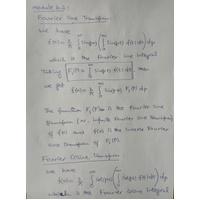 module 6.3:
Fourier Sine Transform
We have
f(x) = 2/π ∫₀^∞ Sin(px) (∫₀^∞ Sin(pt) f(t) dt) dp
which is the Fourier Sine
Taking Fs(p) = ∫₀^∞ Sin(pt) f(t) dt then
we get
f(x) = 2/π ∫₀^∞ Sin(px) Fs(p) dp
The function Fs(p) is the Fourier Sine
transform (or, infinite Fourier Sine transform)
of f(x) and f(x) is the inverse Fourier
Sine transform of Fs(p).
Fourier Cosine Transform
We have
f(x) = 2/π ∫₀^∞ Cos(px) (∫₀^∞ Cos(pt) f(t) dt) dp
which is the Fourier Cosine Integral